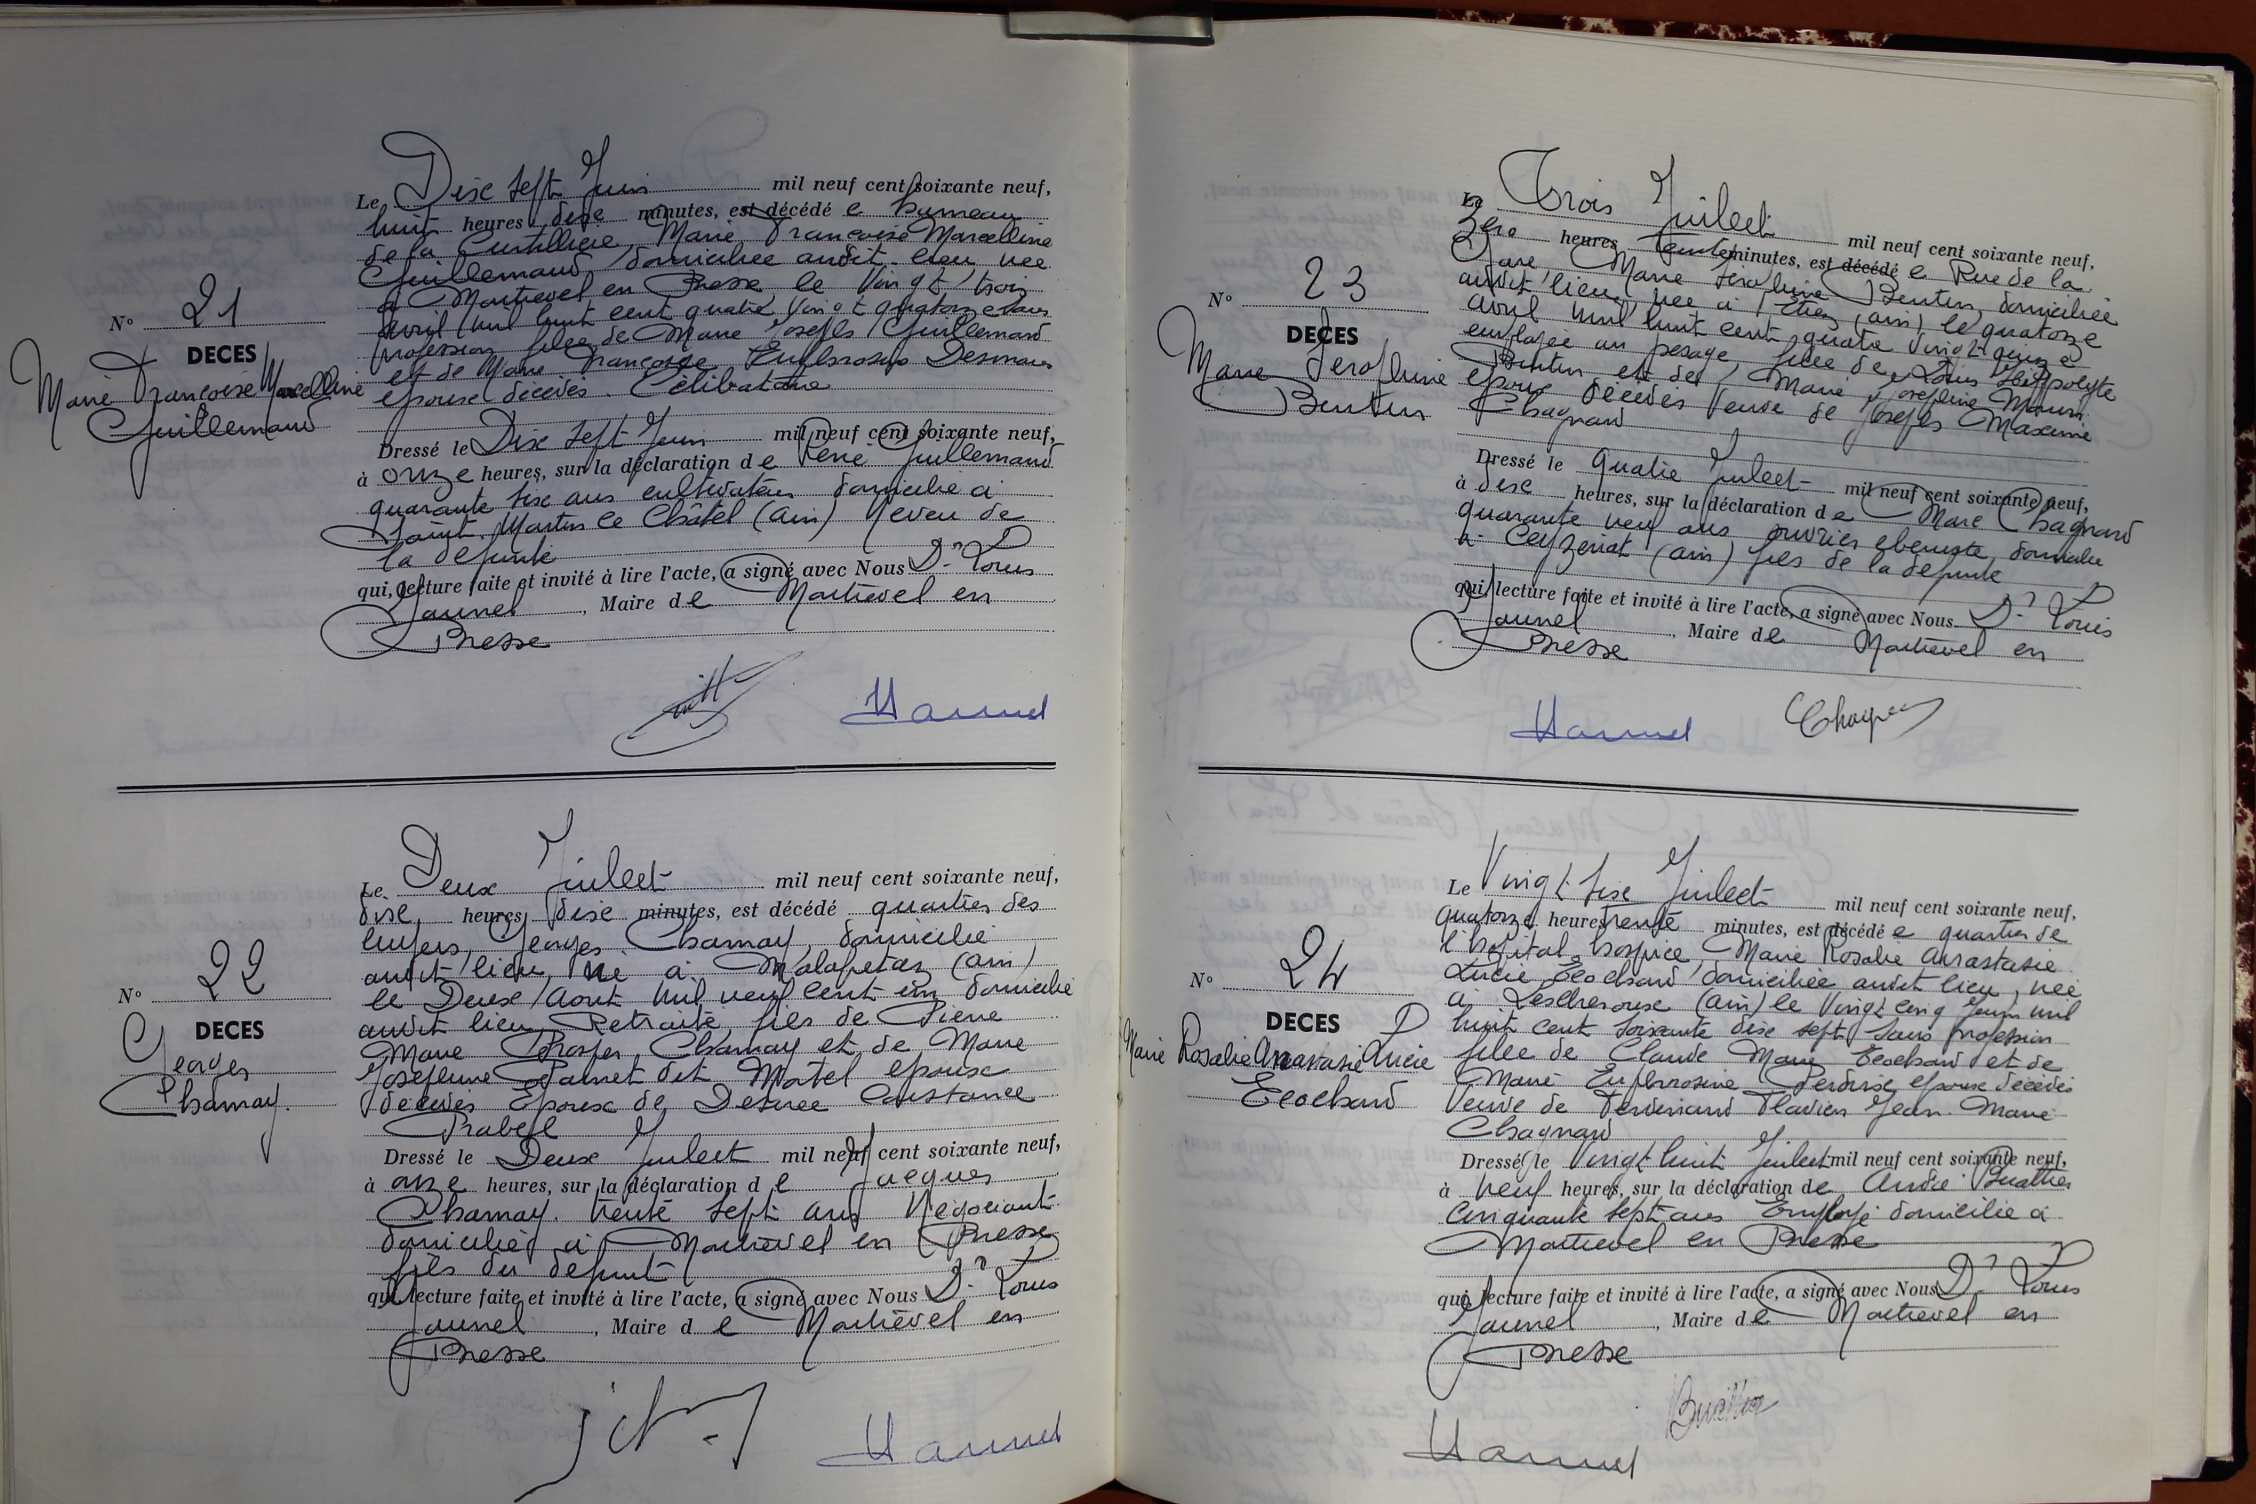 N° 21
DECES
Marie Françoise Marcelline
Guillemaud
Le Dix sept Juin mil neuf cent soixante neuf,
huit heures dix minutes, est décédé e hameau
de la Marie Françoise Marcelline
Guillemaud, domiciliée audit lieu née
à Montrevel en Bresse le Vingt trois
avril mil huit cent quatre vingt quatorze sans
profession fille de Marie Joseph Guillemaud
et de Marie Françoise Euphrosine
époux décédés. Célibataire
Dressé le Dix sept Juin mil neuf cent soixante neuf,
à onze heures, sur la déclaration d e René Guillemaud
quarante six ans cultivateur domicilié à
Saint Martin le Châtel (ain) Neveu de
la défunte
qui, lecture faite et invité à lire l'acte, a signé avec Nous Dr Louis
Jaunel, Maire d e Montrevel en
Bresse
N° 22
DECES
Georges
Charnay.
Le Deux Juillet mil neuf cent soixante neuf,
dix heures dix minutes, est décédé quartier des
Georges Charnay, domicilié
audit lieu, né à Malafretaz (ain)
le Deux Aout mil neuf cent un domicilié
audit lieu, Retraité, fils de Pierre
Marie Prosper Charnay et de Marie
Josephine dit Martel epoux
décédés Epoux de Désirée Constance
Prabel
Dressé le Deux Juillet mil neuf cent soixante neuf,
à onze heures, sur la déclaration d e Jacques
Charnay. trente sept ans Négociant
domicilié à Montrevel en Bresse
fils du défunt
qui, lecture faite et invité à lire l'acte, a signé avec Nous Dr Louis
Jaunel, Maire d e Montrevel en
Bresse
N° 23
DECES
Marie Seraphine
Bentin
Le Trois Juillet mil neuf cent soixante neuf,
Zéro heures trente minutes, est décédé e Rue de la
Gare Marie Séraphine Bentin, domiciliée
audit lieu, née à Etrez (ain) le quatorze
avril mil huit cent quatre vingt quinze
employée au pesage, fille de Louis Hippolyte
Bentin et de Marie Joséphine
époux décédés Veuve de Joseph Maxime
Chagnard
Dressé le quatre Juillet mil neuf cent soixante neuf,
à dix heures, sur la déclaration d e Marc Chagnard
quarante neuf ans ouvrier ébeniste, domicilié
à Ceyzériat (ain) fils de la défunte
qui, lecture faite et invité à lire l'acte, a signé avec Nous Dr Louis
Jaunel, Maire d e Montrevel en
Bresse
N° 24
DECES
Marie Rosalie Anastasie Lucie
Ecochard
Le Vingt six Juillet mil neuf cent soixante neuf,
quatorze heures trente minutes, est décédé e quartier de
l'hopital-hospice, Marie Rosalie Anastasie
Lucie Ecochard domiciliée audit lieu, née
à Lescheroux (ain) le Vingt cinq Juin mil
huit cent soixante dix sept Sans profession
fille de Claude Marie Ecochard et de
Marie Euphrosine Perdrix epoux décédés
Veuve de Ferdinand Flavien Jean-Marie
Chagnard
Dressé le Vingt huit Juillet mil neuf cent soixante neuf,
à neuf heures, sur la déclaration de André Buathier
Cinquante sept ans Employé domicilié à
Montrevel en Bresse
qui, lecture faite et invité à lire l'acte, a signé avec Nous Dr Louis
Jaunel, Maire d e Montrevel en
Bresse